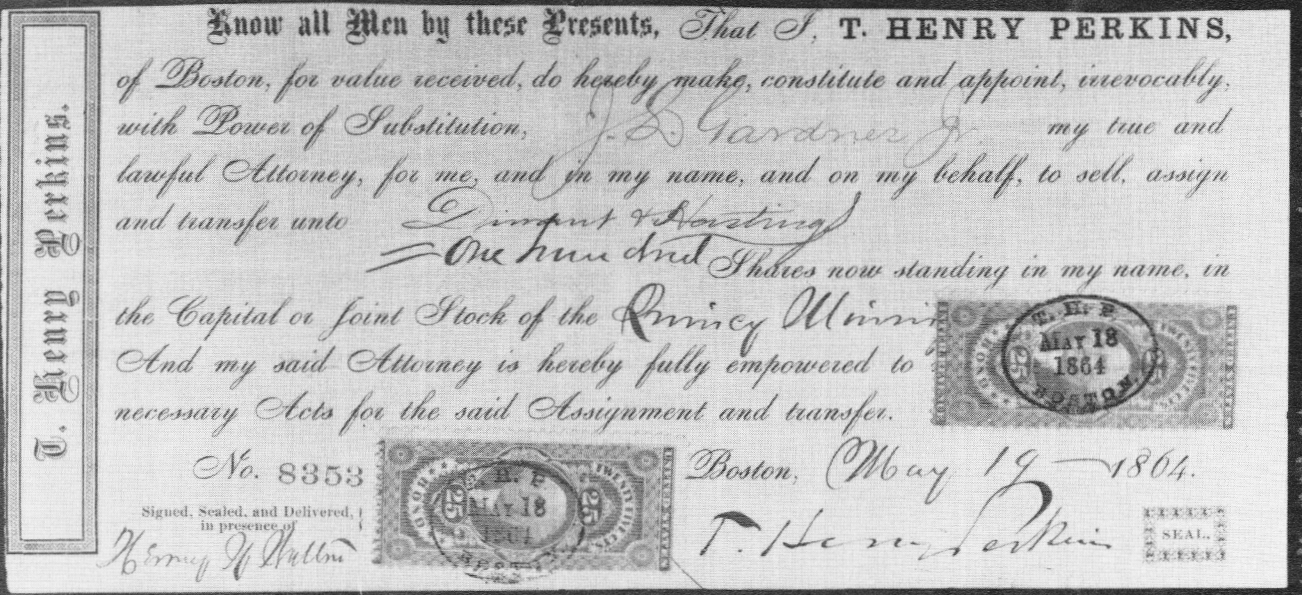 T. Henry Perkins.
Know all Men by these Presents, That I, T. HENRY PERKINS,
of Boston, for value received, do hereby make, constitute and appoint, irrevocably,
with Power of Substitution, J. L. Gardner Jr. my true and
lawful Attorney, for me, and in my name, and on my behalf, to sell, assign
and transfer unto Diment & Hastings
= One hundred Shares now standing in my name, in
the Capital or Joint Stock of the Quincy Mining
And my said Attorney is hereby fully empowered to
necessary Acts for the said Assignment and transfer.
T. H. P.
MAY 18
1864
BOSTON.
BOND 25 25 TWENTY FIVE CTS.
No. 8353
Boston, May 19 — 1864.
Signed, Sealed, and Delivered,
in presence of
Henry
T. Henry Perkins
SEAL.
H. P
MAY 18
1864
BOND 25 25 TWENTY FIVE CTS.